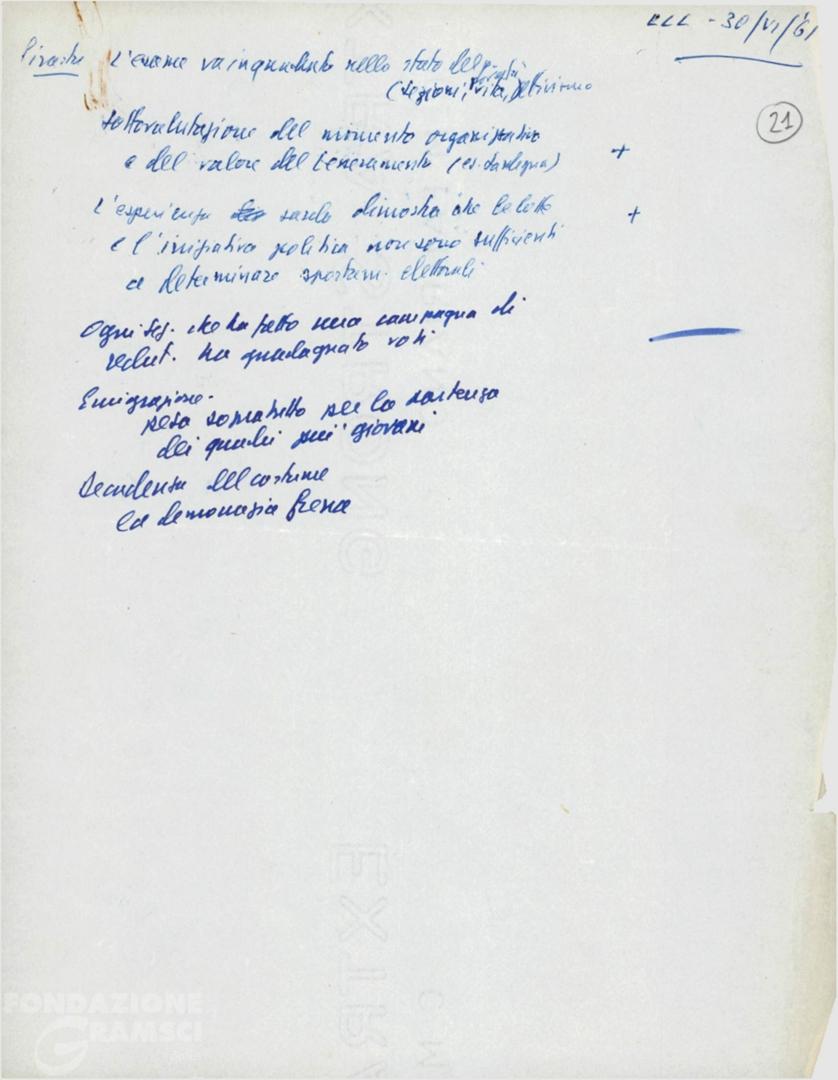 30/VI/61
21
Pirastu L'esame va inquadrato nello stato del p.
(sezioni, vita, attivismo
sottovalutazione del momento organizzativo
e del valore del tesseramento (es. Sardegna) +
L'esperienza sarda dimostra che le lotte +
e l'iniziativa politica non sono sufficienti
a determinare spostam. elettorali
Ogni sez. che ha fatto una campagna di
reclut. ha guadagnato voti
Emigrazione.
pesa soprattutto per la partenza
dei quadri più giovani
Decadenza del costume
la democrazia frena
FONDAZIONE
GRAMSCI